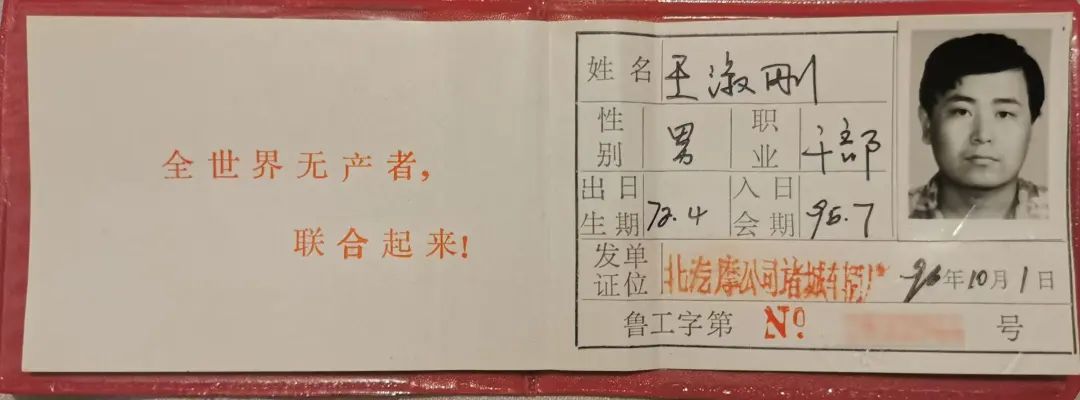 全世界无产者,
联合起来!
姓名 王淑刚
性别 男 职业 干部
出生日期 72.4 入会日期 95.7
发证单位 北汽摩公司诸城车辆厂 96年10月1日
鲁工字第 No. 号